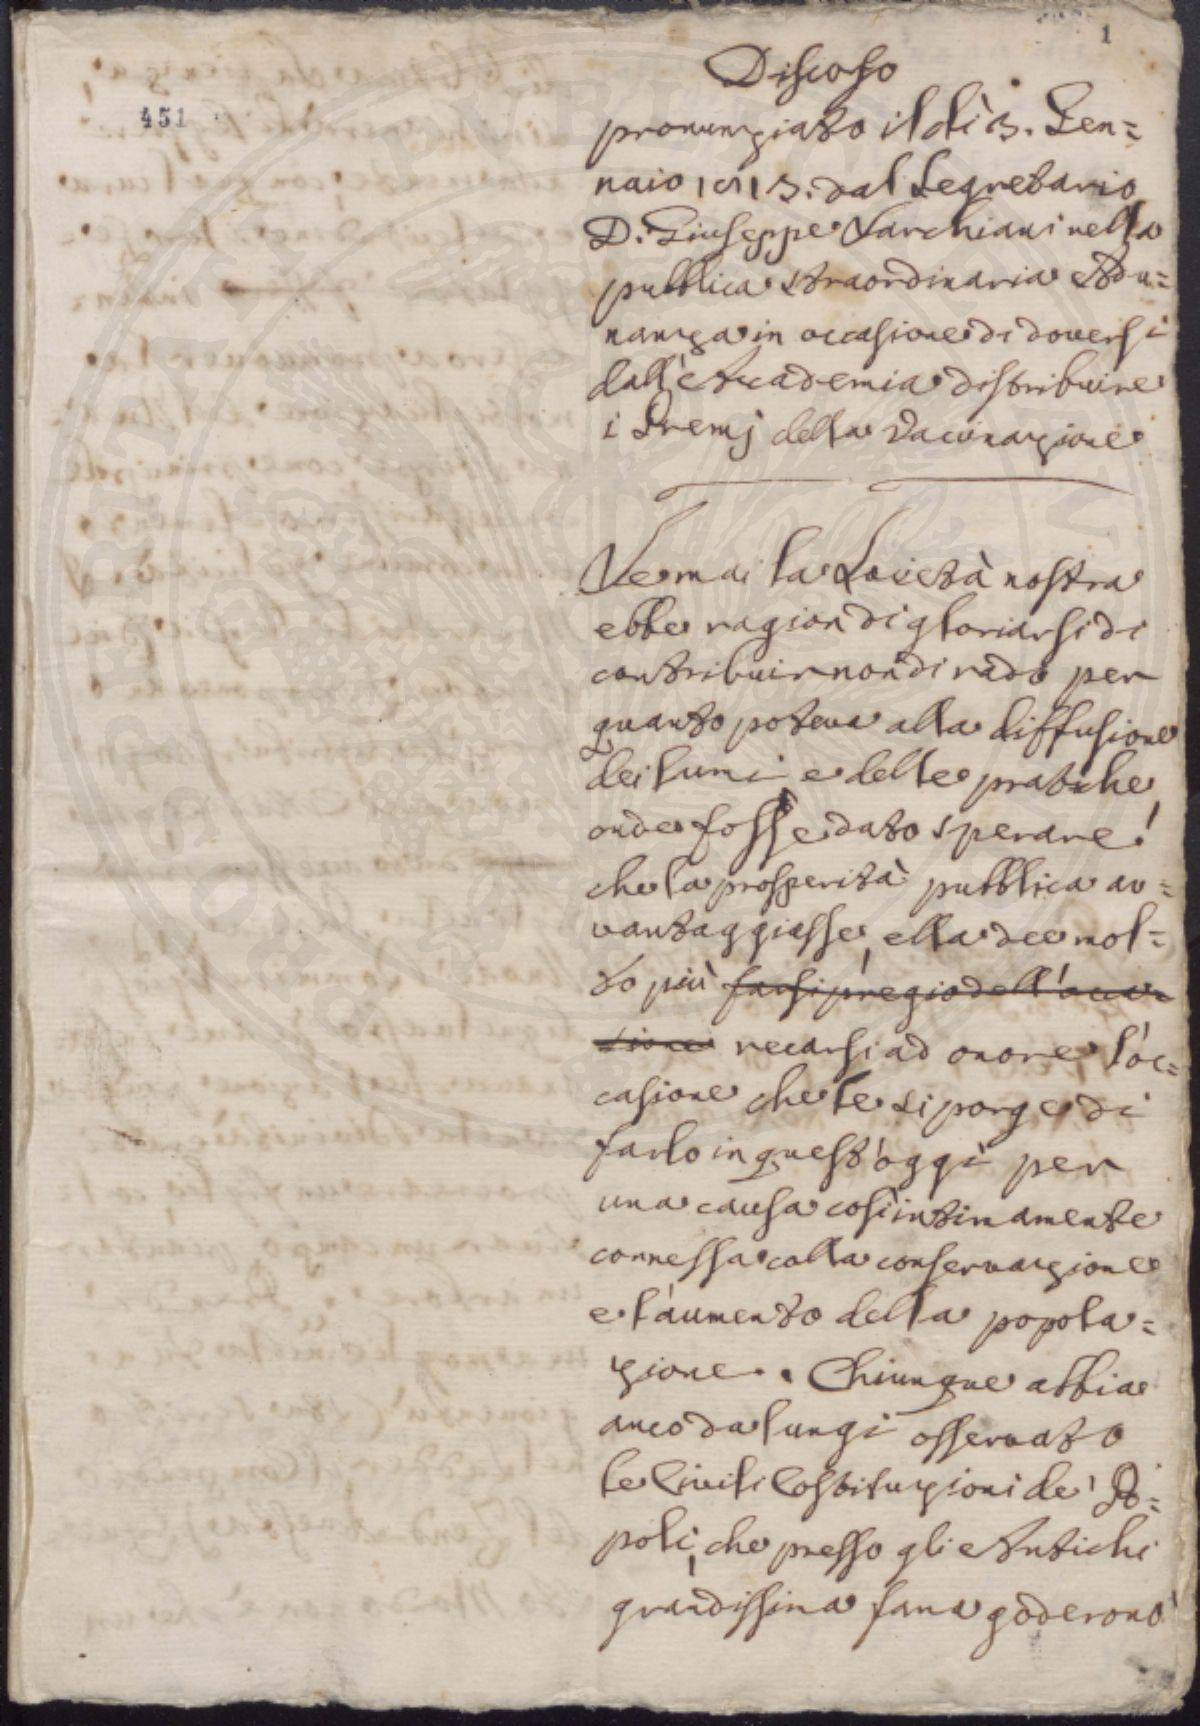 1
451
Discorso
pronunziato il dì 3. Gen=
naio 1813. dal Segretario
D. Giuseppe Marchiani nella
pubblica straordinaria Adu=
nanza in occasione di doversi
dall'Accademia distribuire
i Premj della Vaccinazione
Se mai la Società nostra
ebbe ragion di gloriarsi di
contribuir non di rado per
quanto poteva alla diffusione
dei lumi, e delle pratiche,
onde fosse dato sperare,
che la prosperità pubblica av=
vantaggiasse, ella dee mol=
to più farsi pregio dell'occa=
sione recarsi ad onore l'oc=
casione che le si porge di
farlo in quest'oggi per
una causa così intimamente
connessa colla conservazione
e l'aumento della popola=
zione. Chiunque abbia
anco da lungi osservato
le Civili Costituzioni de' Po=
poli, che presso gli Antichi
grandissima fama goderono